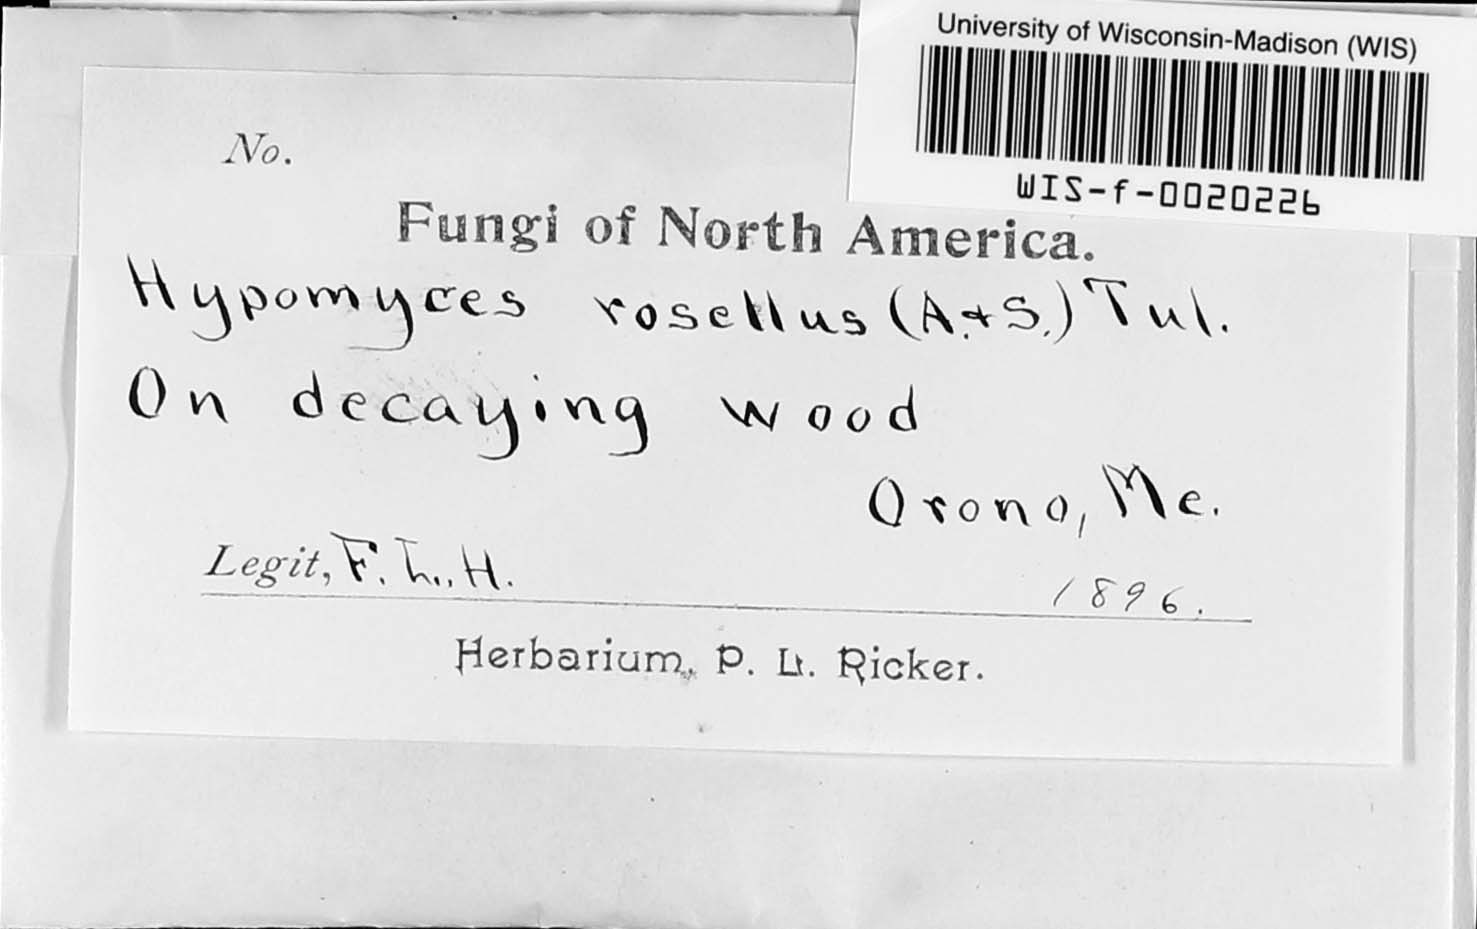 University of Wisconsin-Madison (WIS)
WIS-f-0020226
No.
Fungi of North America.
Hypomyces rosellus (A. & S.) Tul.
On decaying wood
Orono, Me.
Legit, F. L. H.
1896.
Herbarium, P. L. Ricker.